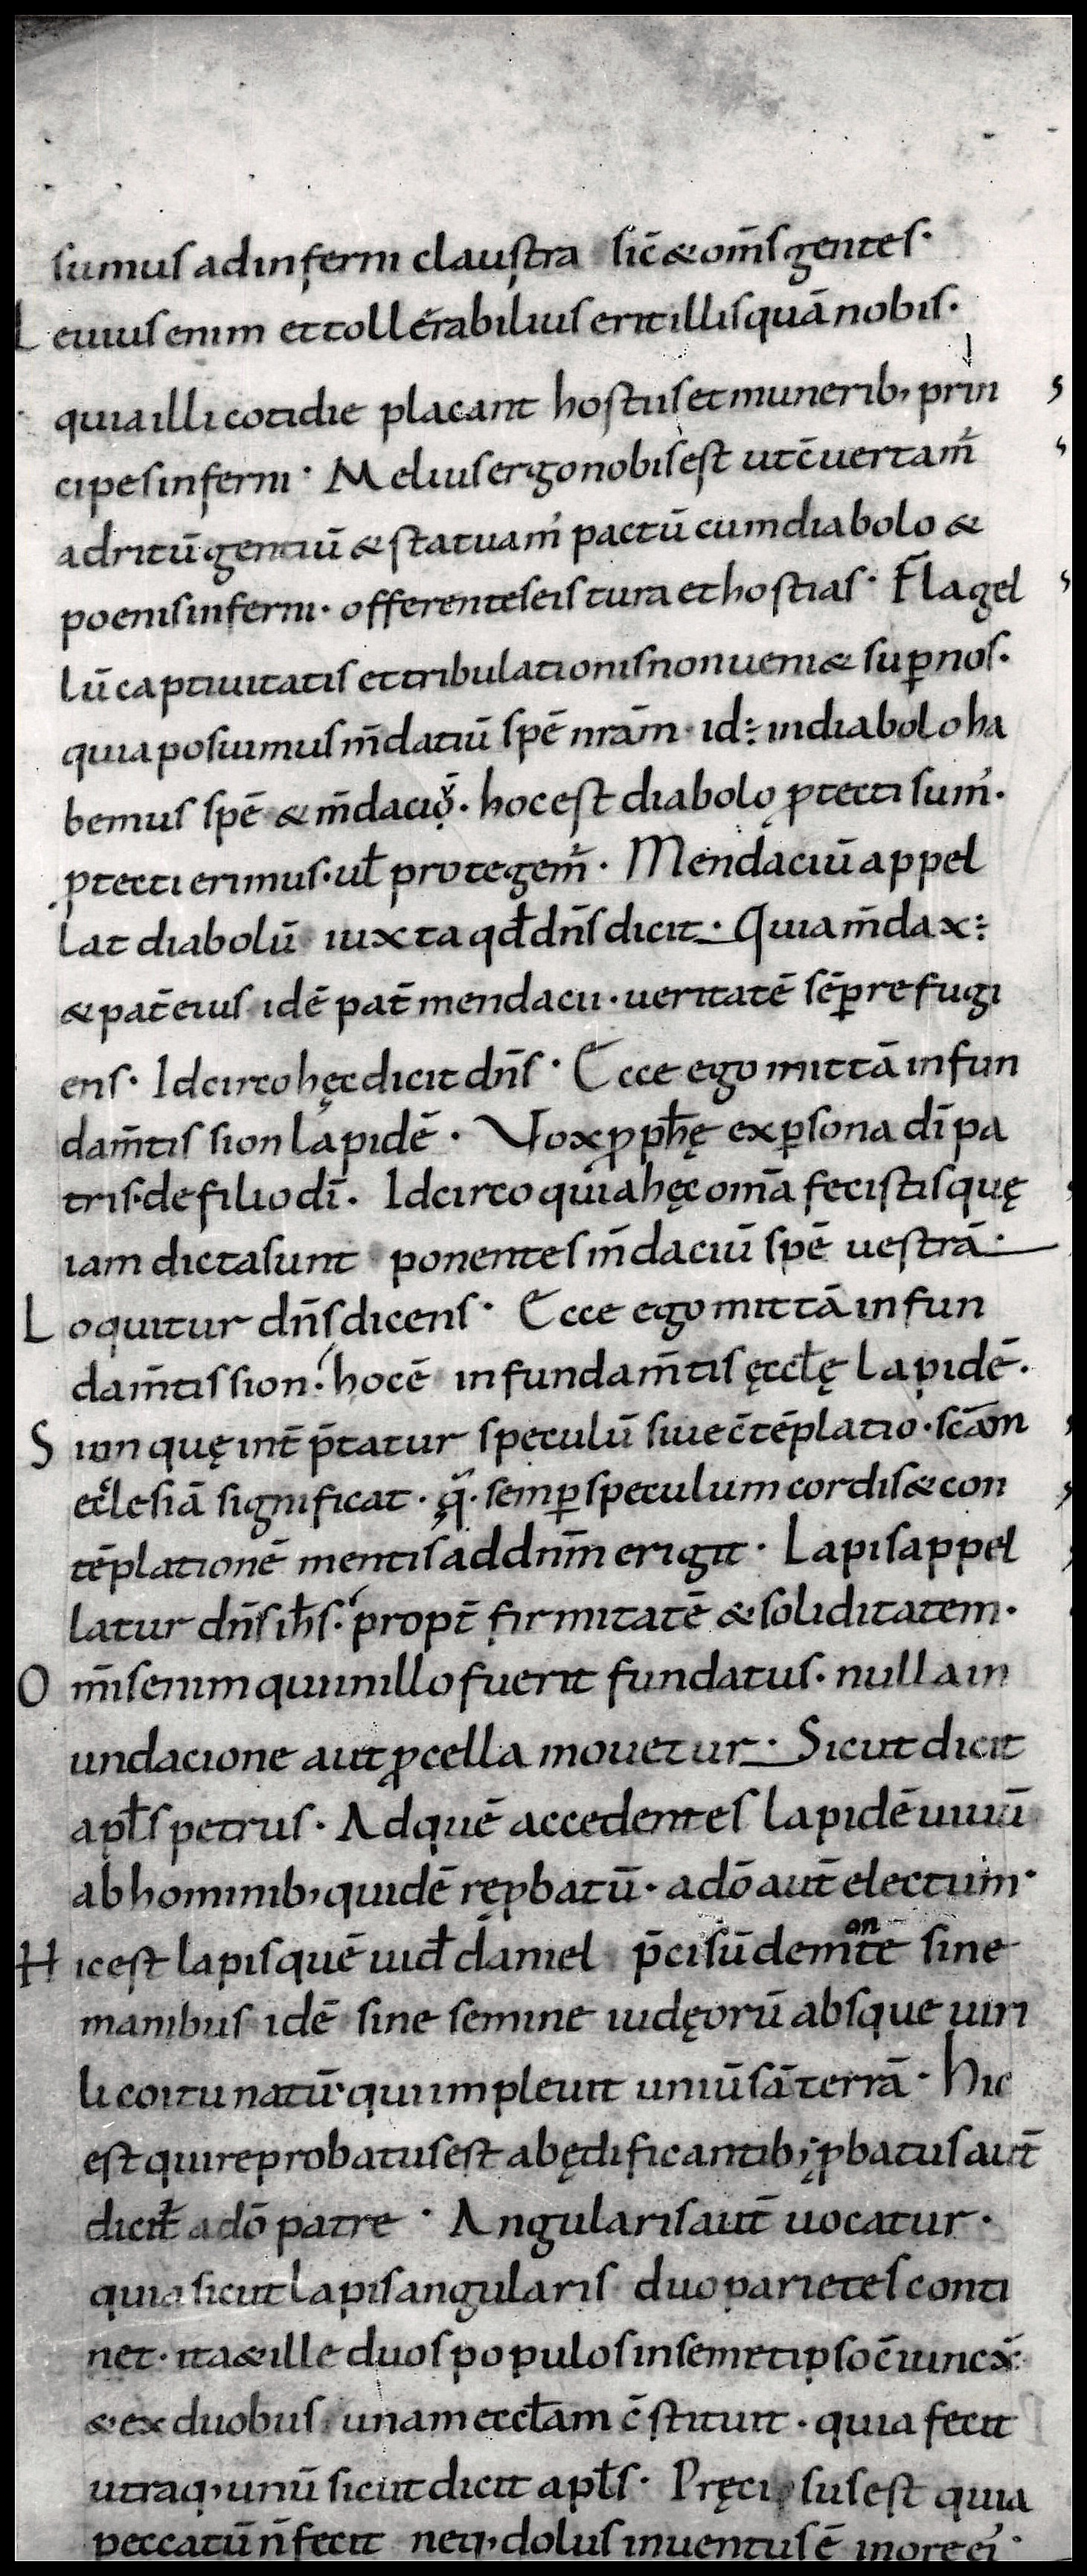 sumus ad inferni claustra sic̄ & om̄s gentes·
Leuius enim et tollerabilius erit illis quā nobis·
quia illi cotidie placant hostiis et munerib; prin
cipes inferni· Melius ergo nobis est ut c̄uertam̄
ad ritū gentiū & statuam' pactū cum diabolo &
poenis inferni· offerentes eis tura et hostias· Flagel
lū captiuitatis et tribulationis non ueni& sup̱ nos·
quia posuimus m̄daciū spē nrām· id÷ in diabolo ha
bemus spē & m̄dacio· hoc est diabolo ꝓtecti sum'·
ꝓtecti erimus· ul̄ protegem̄· Mendaciū appel
lat diabolū iuxta qđ dn̄s dicit· Quia m̄dax÷
& pat̄ eius idē pat̄ mendacii· ueritatē sēp̱ refugi
ens· Idcirco hęc dicit dn̄s· Ecce ego mittā in fun
dam̄tis sion lapidē· Vox ꝓph̄ę ex p̱sona dī pa
tris· de filio dī· Idcirco quia hęc om̄a fecistis quę
iam dicta sunt ponentes m̄daciū spē uestrā·
Loquitur dn̄s dicens· Ecce ego mittā in fun
dam̄tis sion· hoc ē in fundam̄tis ęccł̄ę lapidē·
Sion quę int̄p̄tatur speculū siue c̄tēplatio· scām
ecclesiā significat· q̄· semp̱ speculum cordis & con
tēplationē mentis ad dn̄m erigit· Lapis appel
latur dn̄s ih̄s· propt̄ firmitatē & soliditatem·
Om̄is enim qui in illo fuerit fundatus· nulla in
undacione aut ꝓcella mouetur· Sicut dicit
apl̄s petrus· Ad quē accedentes lapidē uiuū
ab hominib; quidē reꝓbatū· a dō aut̄ electum·
Hic est lapis quē uid̄ daniel p̄cisū de monte sine
manibus idē sine semine iudęorū absque uiri
li coitu natū· qui impleuit uniūsā terrā· Hic
est qui reprobatus est ab ędificantib; ꝓbatus aut̄
dicit̄ a dō patre· Angularis aut̄ uocatur·
quia sicut lapis angularis duo parietes conti
net· ita & ille duos populos in semetipso c̄iuncx̄·
& ex duobus unam eccl̄am c̄stituit· quia fecit
utraq; unū sicut dicit apl̄s· Pręciosus est quia
peccatū n̄ fecit neq; dolus inuentus ē in ore ei'·